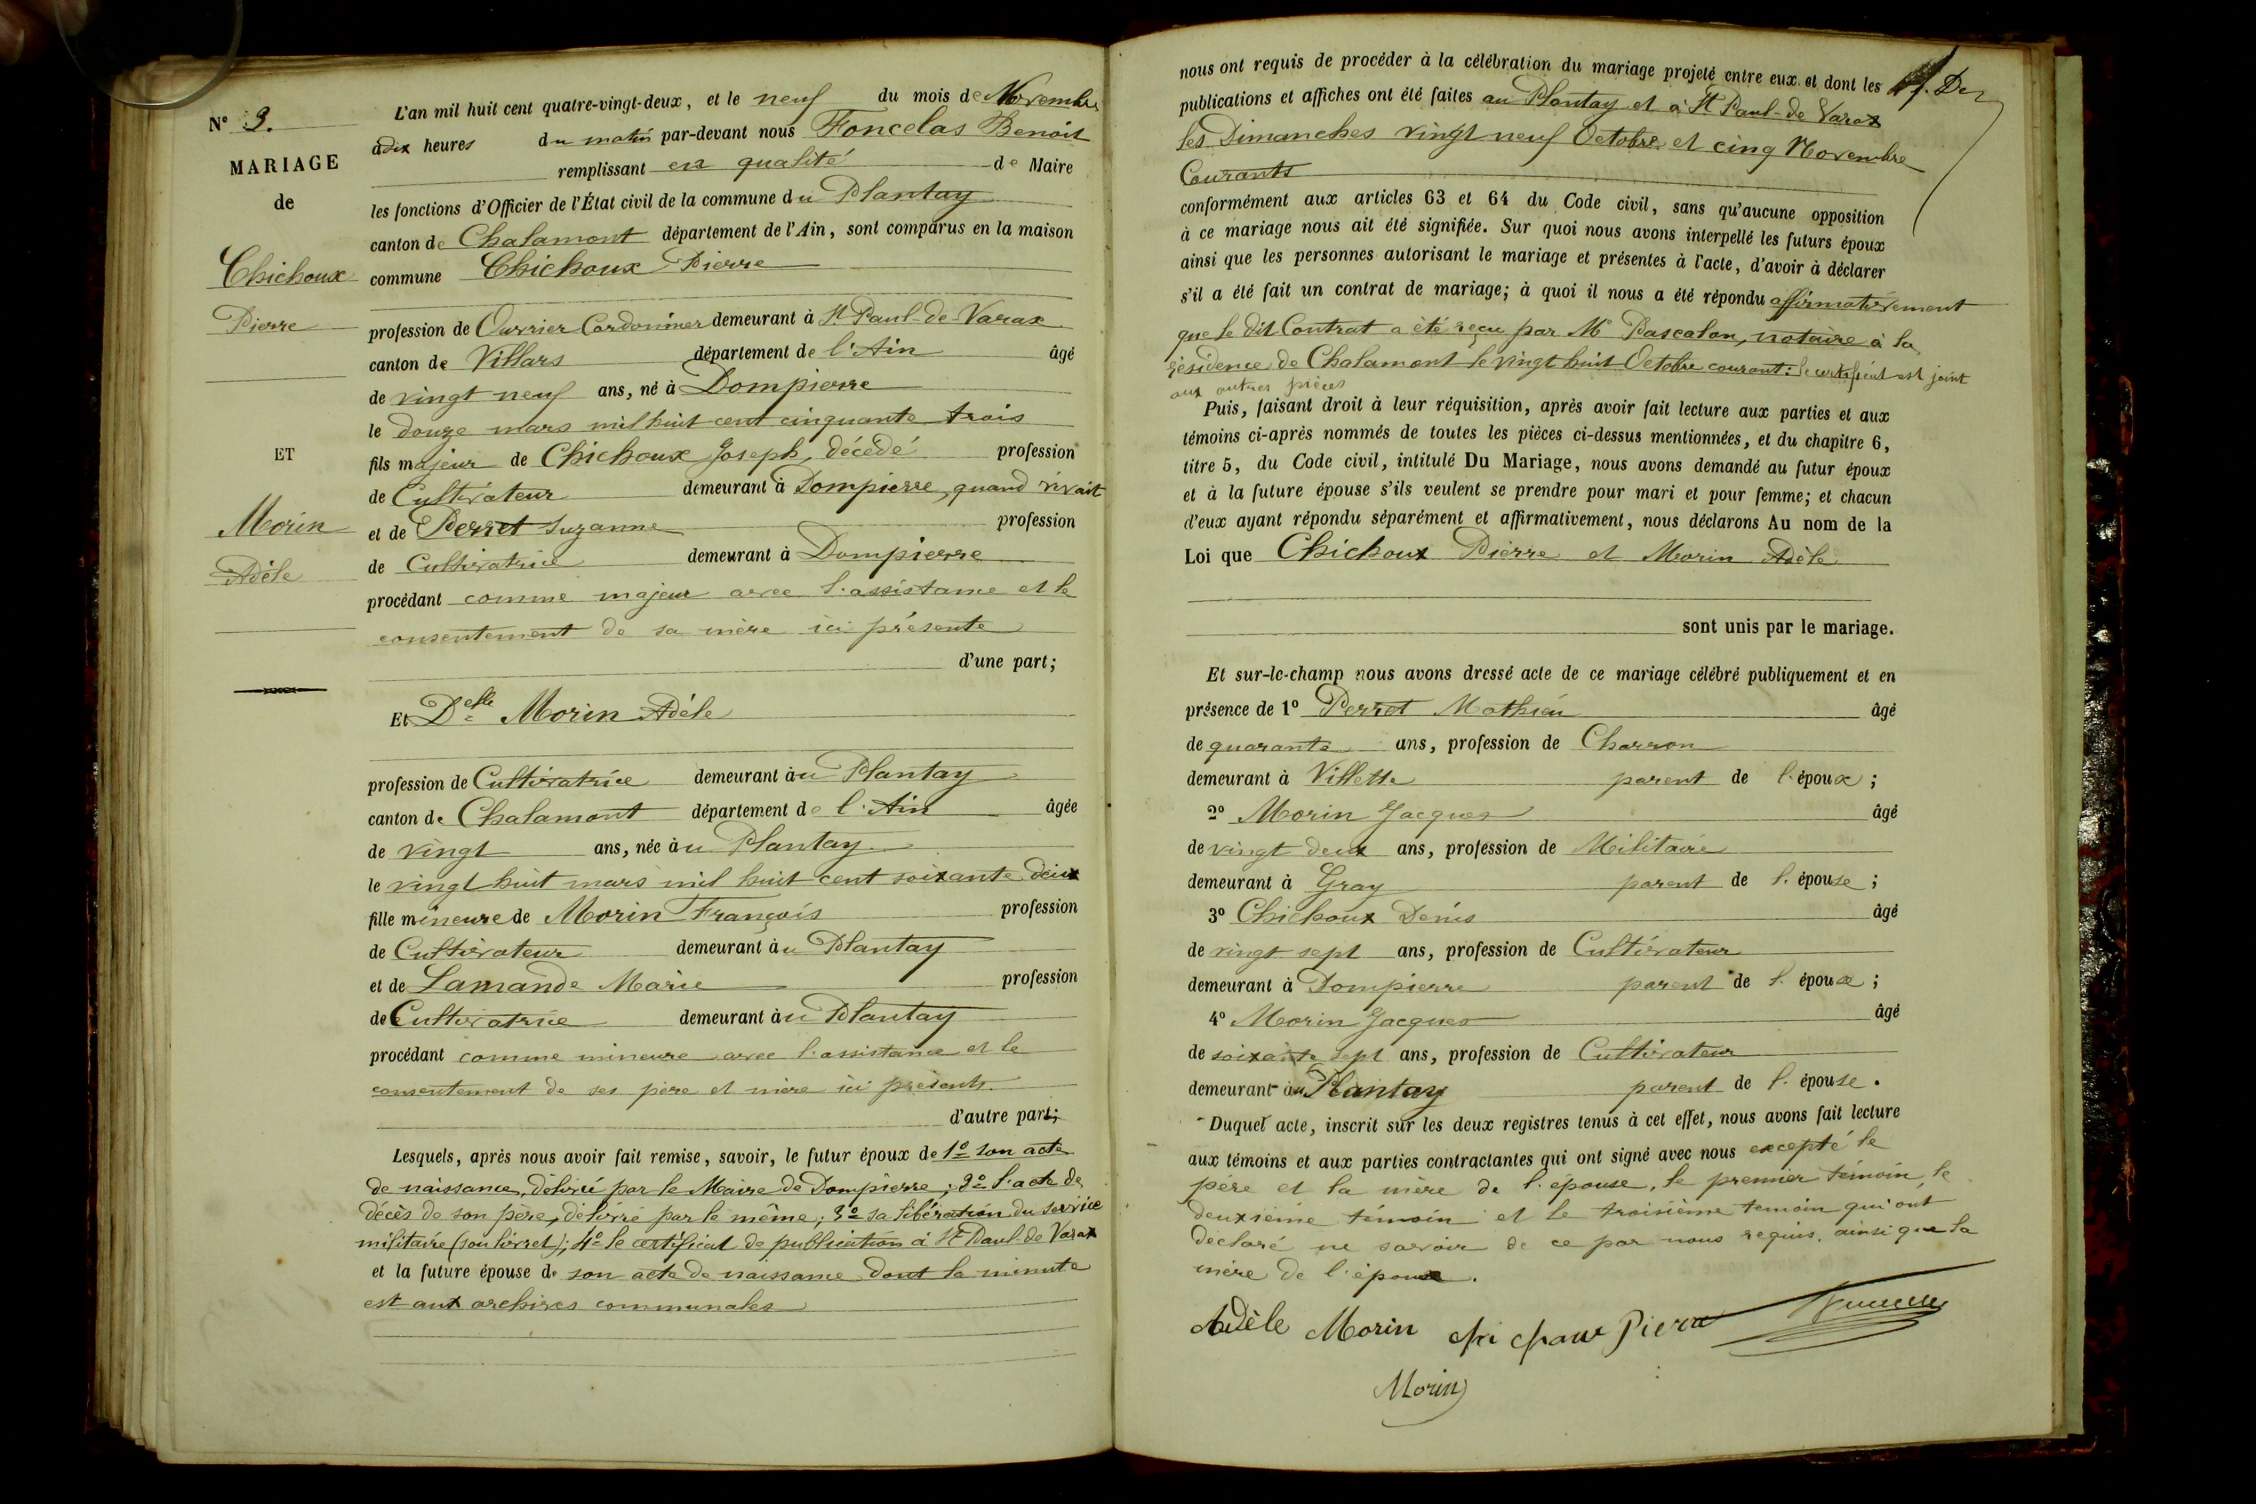 N° 9.
MARIAGE
de
Chichoux
Pierre
ET
Morin
Adèle
L'an mil huit cent quatre-vingt-deux, et le neuf du mois de Novembre
à dix heures du matin par-devant nous Foncelas Benoit
remplissant en qualité de Maire
les fonctions d'Officier de l'État civil de la commune du Plantay
canton de Chalamont département de l'Ain, sont comparus en la maison
commune Chichoux Pierre
profession de Ouvrier Cordonnier demeurant à St Paul-de-Varax
canton de Villars département de l'Ain âgé
de vingt neuf ans, né à Dompierre
le douze mars mil huit cent cinquante trois
fils majeur de Chichoux Joseph, décédé profession
de Cultivateur demeurant à Dompierre, quand vivait
et de Perret Suzanne profession
de Cultivatrice demeurant à Dompierre
procédant comme majeur avec l'assistance et le
consentement de sa mère ici présente
d'une part;
Et Delle Morin Adèle
profession de Cultivatrice demeurant àu Plantay
canton de Chalamont département de l'Ain âgée
de vingt ans, née àu Plantay
le vingt huit mars mil huit cent soixante deux
fille mineure de Morin François profession
de Cultivateur demeurant àu Plantay
et de Lamande Marie profession
de Cultivatrice demeurant àu Plantay
procédant comme mineure avec l'assistance et le
consentement de ses père et mère ici présents.
d'autre part;
Lesquels, après nous avoir fait remise, savoir, le futur époux de 1° son acte
de naissance, délivré par le Maire de Dompierre; 2° l'acte de
décès de son père, délivré par le même; 3° sa libération du service
militaire (son livret); 4° le certificat de publication à St Paul de Varax
et la future épouse de son acte de naissance dont la minute
est aux archives communales
nous ont requis de procéder à la célébration du mariage projeté entre eux et dont les
publications et affiches ont été faites au Plantay et à St Paul-de Varax
les Dimanches vingt neuf Octobre et cinq Novembre
Courants
conformément aux articles 63 et 64 du Code civil, sans qu'aucune opposition
à ce mariage nous ait été signifiée. Sur quoi nous avons interpellé les futurs époux
ainsi que les personnes autorisant le mariage et présentes à l'acte, d'avoir à déclarer
s'il a été fait un contrat de mariage; à quoi il nous a été répondu affirmativement
que le dit Contrat a été reçu par Me Pascalon, notaire à la
résidence de Chalamont le vingt huit Octobre courant: le certificat est joint
aux autres pièces
Puis, faisant droit à leur réquisition, après avoir fait lecture aux parties et aux
témoins ci-après nommés de toutes les pièces ci-dessus mentionnées, et du chapitre 6,
titre 5, du Code civil, intitulé Du Mariage, nous avons demandé au futur époux
et à la future épouse s'ils veulent se prendre pour mari et pour femme; et chacun
d'eux ayant répondu séparément et affirmativement, nous déclarons Au nom de la
Loi que Chichoux Pierre et Morin Adèle
sont unis par le mariage.
Et sur-le-champ nous avons dressé acte de ce mariage célébré publiquement et en
présence de 1° Perret Mathieu âgé
de quarante ans, profession de Charron
demeurant à Villette parent de l'époux;
2° Morin Jacques âgé
de vingt deux ans, profession de Militaire
demeurant à Gray parent de l'épouse;
3° Chichoux Denis âgé
de vingt sept ans, profession de Cultivateur
demeurant à Dompierre parent de l'époux;
4° Morin Jacques âgé
de soixante sept ans, profession de Cultivateur
demeurant àu Plantay parent de l'épouse.
Duquel acte, inscrit sur les deux registres tenus à cet effet, nous avons fait lecture
aux témoins et aux parties contractantes qui ont signé avec nous excepté le
père et la mère de l'épouse, le premier témoin, le
deuxième témoin et le troisième témoin qui ont
déclaré ne savoir de ce par nous requis, ainsi que la
mère de l'époux.
Adèle Morin chi choux Pierre
Morin